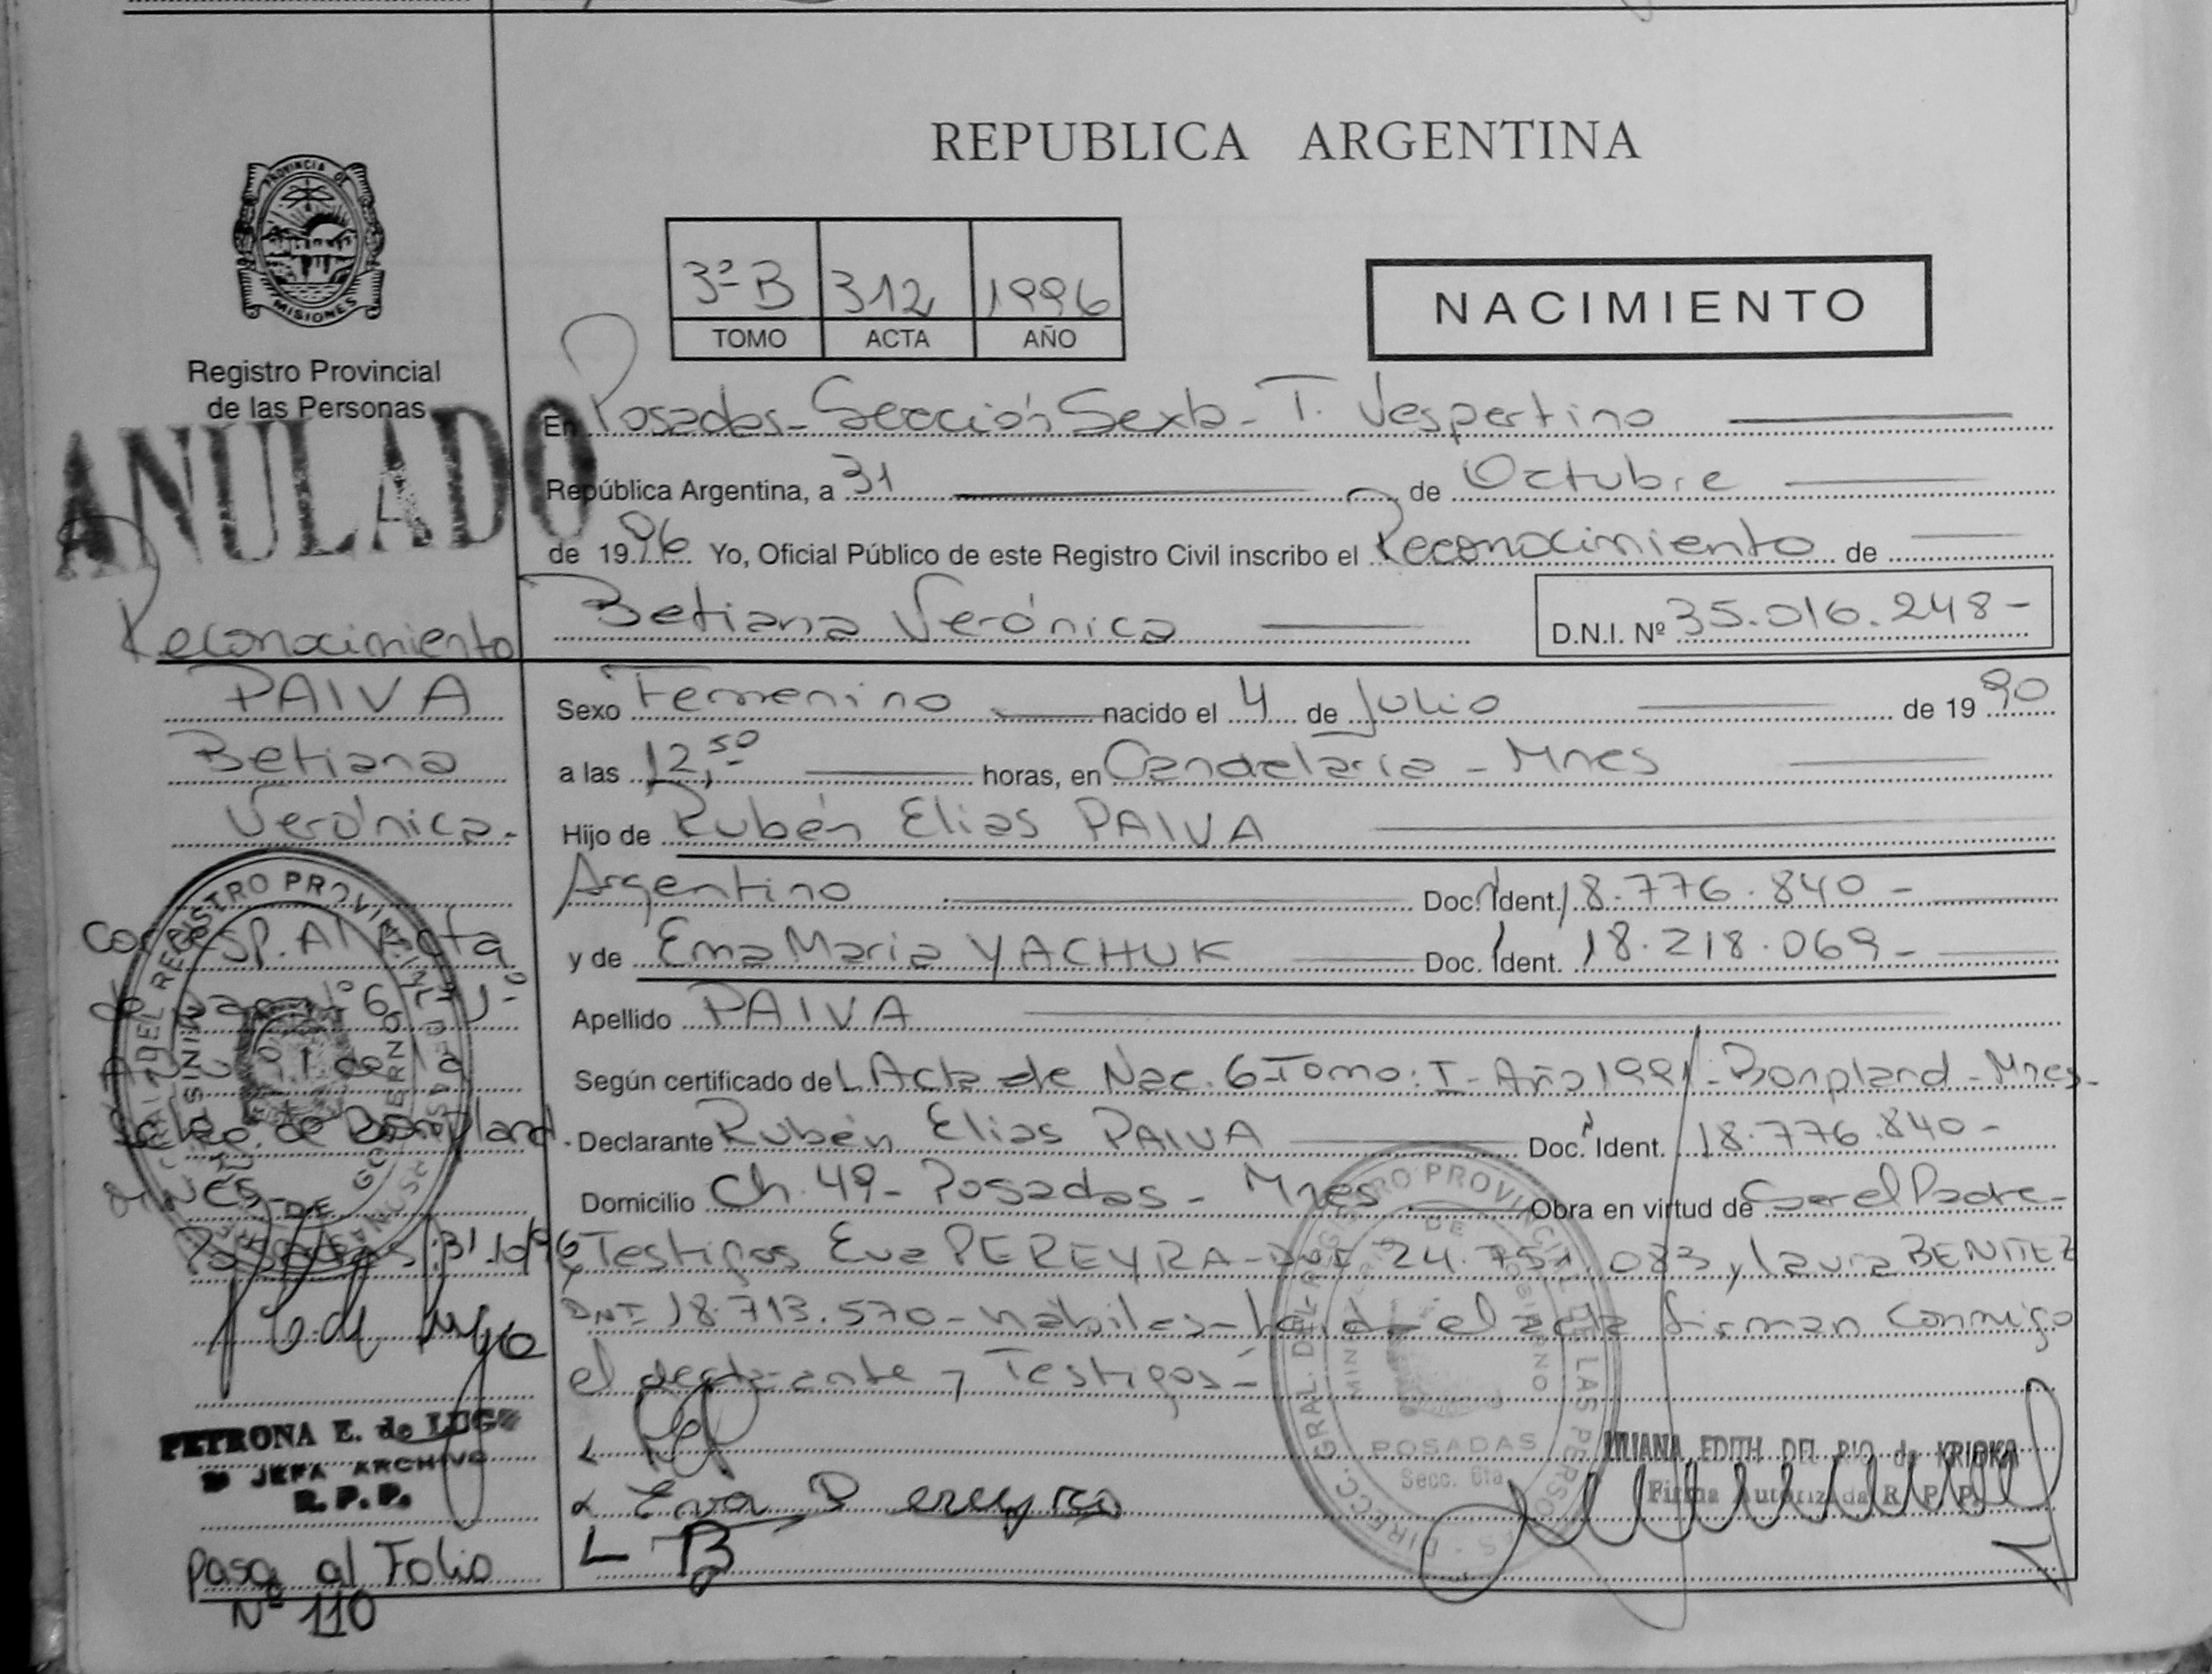 REPUBLICA ARGENTINA
PROVINCIA DE
MISIONES
Registro Provincial
de las Personas
ANULADO
3º B 312 1996
TOMO ACTA AÑO
NACIMIENTO
En Posadas - Sección Sexta - T. Vespertino
República Argentina, a 31 de Octubre
de 1996 Yo, Oficial Público de este Registro Civil inscribo el Reconocimiento de
Betiana Verónica D.N.I. Nº 35.016.248-
Reconocimiento
PAIVA
Betiana
Verónica.-
Sexo Femenino nacido el 4 de Julio de 1990
a las 12,50 horas, en Candelaria - Mnes
Hijo de Rubén Elias PAIVA
Argentino Doc. Ident. 18.776.840-
y de Ema Maria YACHUK Doc. Ident. 18.218.069-
Apellido PAIVA
Según certificado de L Acta de Nac. 6 Tomo: I - Año 1991 - Bonpland - Mnes-
Declarante Rubén Elias PAIVA Doc. Ident. 18.776.840-
Domicilio Ch. 49 - Posadas - Mnes Obra en virtud de Ser el Padre-
Testigos Eva PEREYRA - DNI 24.751.083 y Laura BENITEZ
DNI 18.713.570 - hábiles - leida el acta firman conmigo
el declarante y Testigos-
Corresp. Al Acta
de Nac. Nº 6 Tº 1º
Año 1991 de la
de Bonpland.
Mnes-
Posadas, 31-10-96
PETRONA E. de LUGO
JEFA ARCHIVO
R. P. P.
Pasa al Folio
Nº 110
Eva Pereyra
DIRECC. GRAL. DEL REGISTRO PROVINCIAL DE LAS PERSONAS
MINISTERIO DE GOBIERNO
POSADAS
Secc. 6ta
LILIANA EDITH DEL RIO de KRIOKA
Firma Autorizada R. P. P.